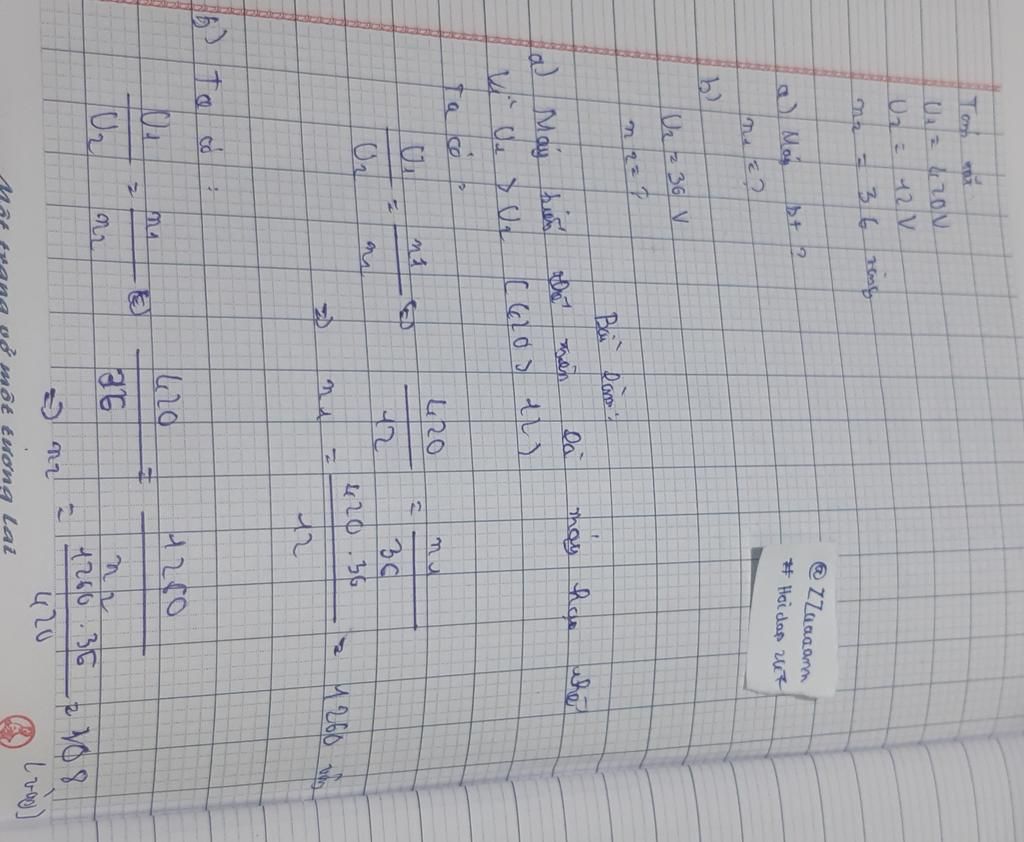 Tóm tắt
U1 = 420V
U2 = 12V
n2 = 36 vòng
a) Máy bt ?
n1 = ?
b)
U2 = 36 V
n2 = ?
Bài làm:
a) Máy biến thế trên là máy hạ thế
Vì U1 > U2 (420 > 12)
Ta có :
U1/U2 = n1/n2 (=) 420/12 = n1/36
=) n1 = 420.36/12 = 1260 vòng
b) Ta có :
U1/U2 = n1/n2 (=) 420/36 = 1260/n2
=) n2 = 1260.36/420 = 108 (vòng)
Một trang vở một tương lai
@ZZaaaamm
# Hoidap 247